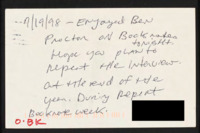 7/19/98 - Enjoyed Ben
Procter on Booknotes
tonight.
Hope you plan to
repeat the interview
at the end of the
year. During repeat
Booknote week.
O. BK